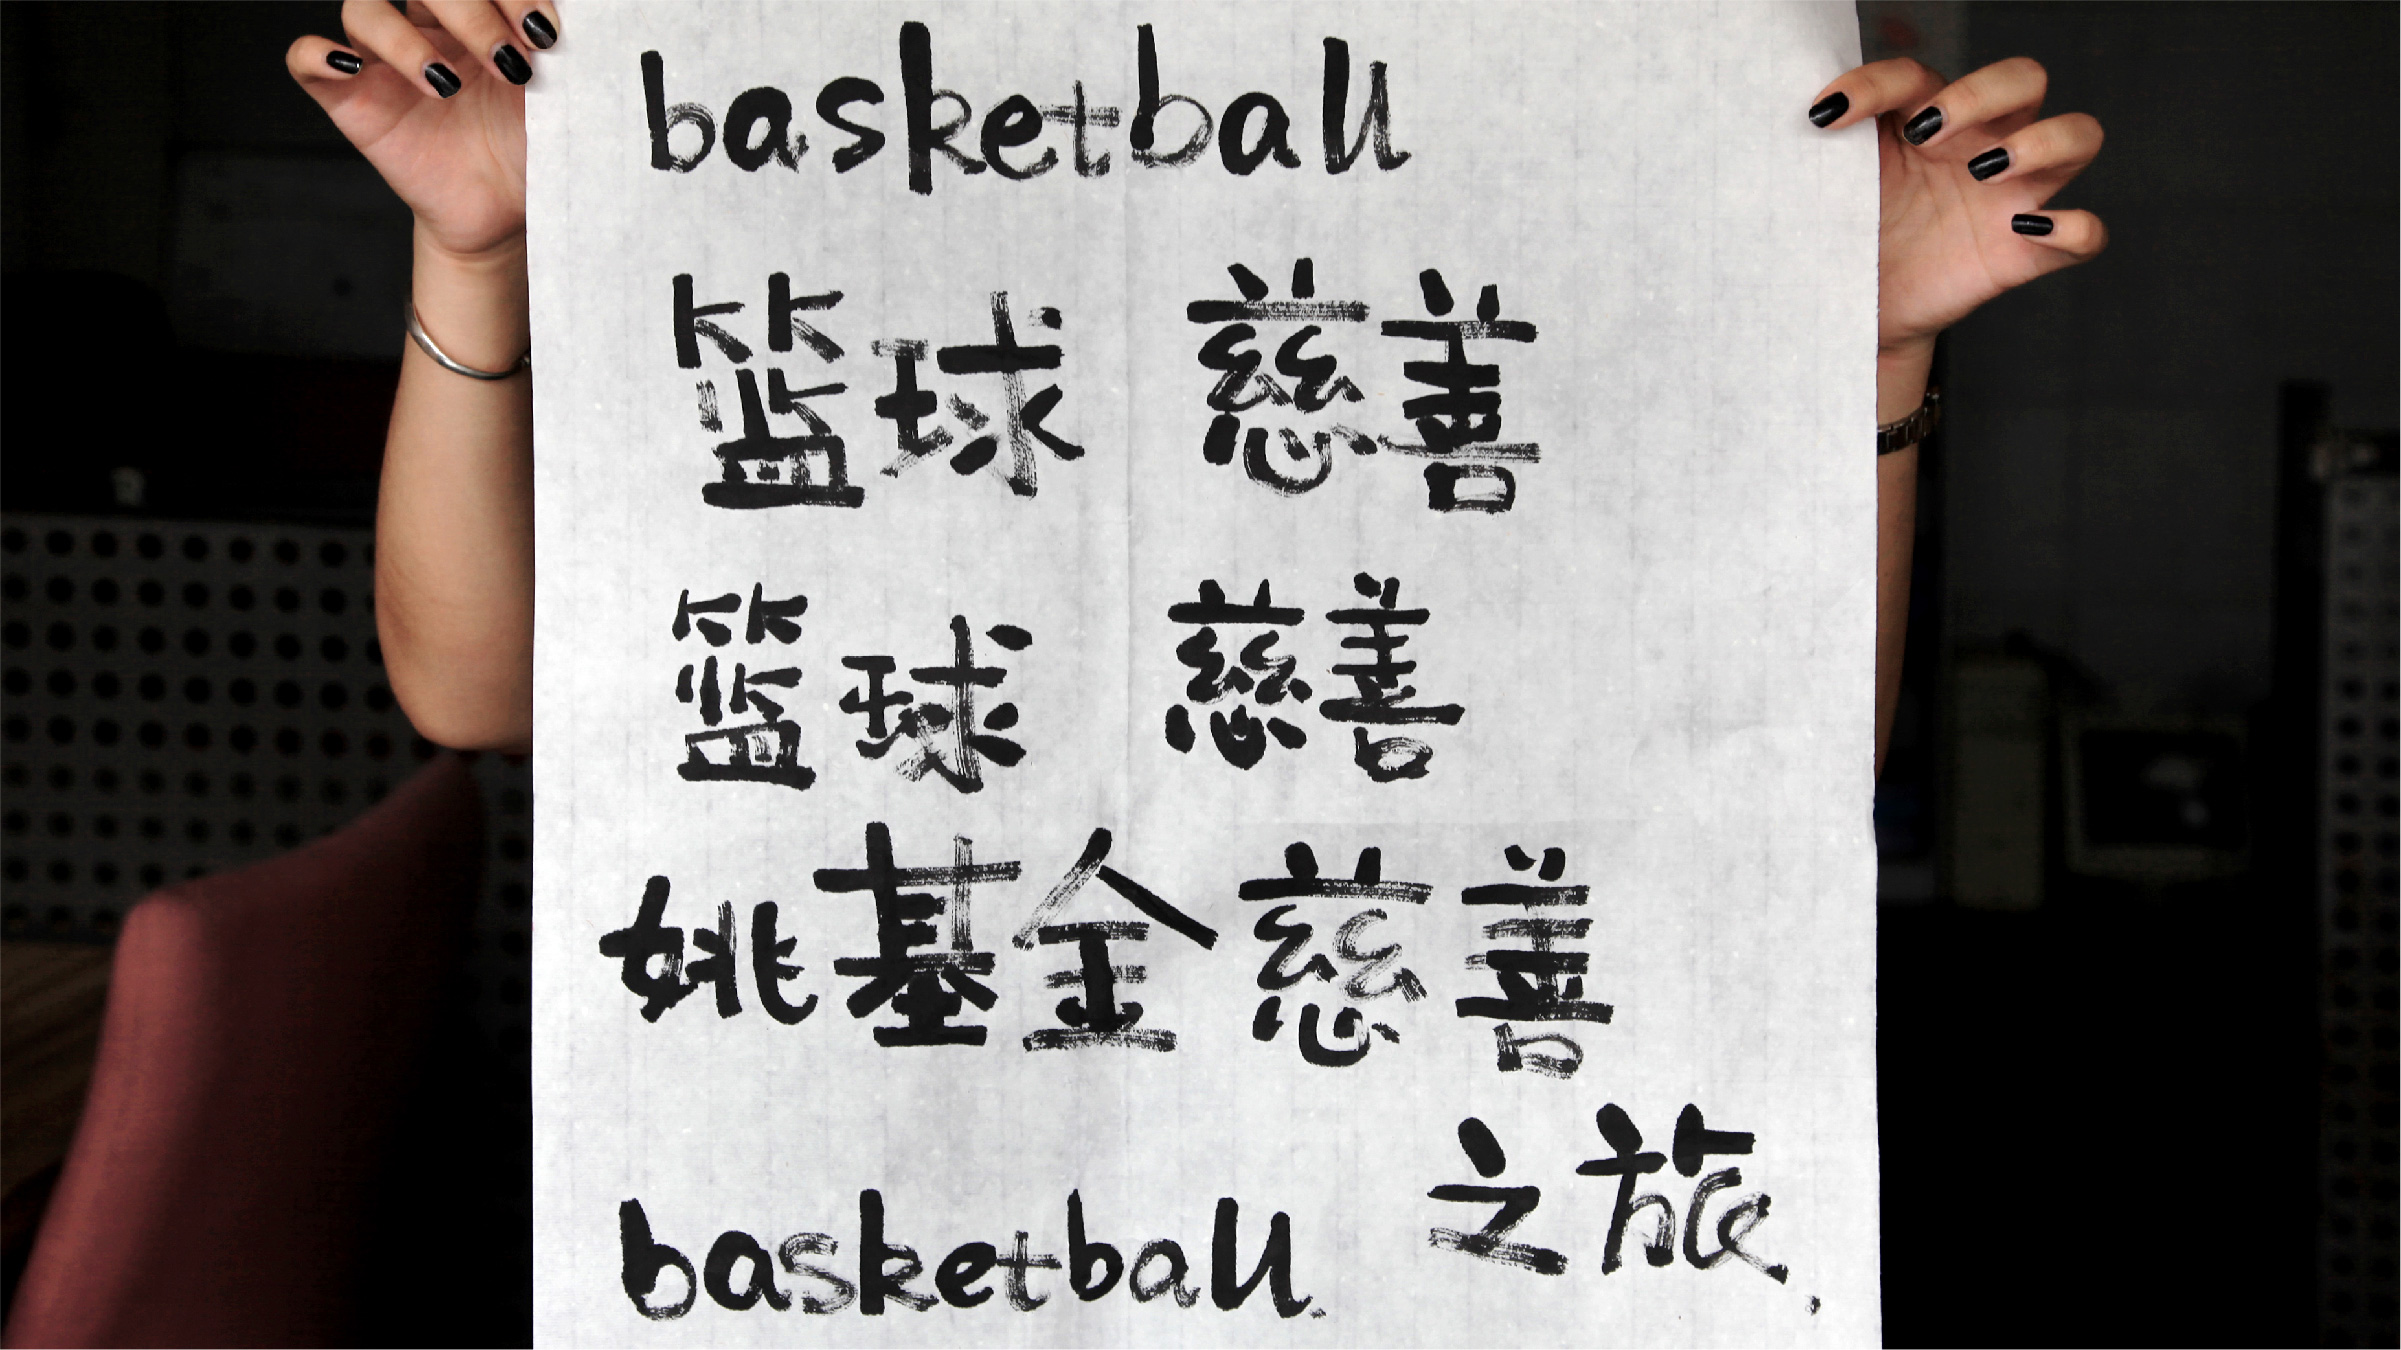 basketball
篮球 慈善
篮球 慈善
姚基金慈善
之旅.
basketball.